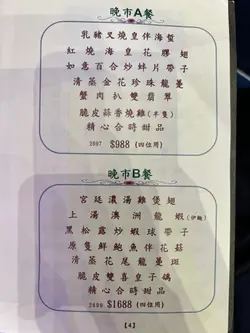 晚市A餐
乳豬叉燒皇伴海蜇
紅燒海皇花膠翅
如意百合炒蚌片帶子
清蒸金花珍珠龍躉
蟹肉扒雙翡翠
脆皮蒜香燒雞(半隻)
精心合時甜品
2007 $988 (四位用)
晚市B餐
宮廷濃湯雞煲翅
上湯澳洲龍蝦(伊麵)
黑松露炒蝦球帶子
原隻鮮鮑魚伴花菇
清蒸花尾龍躉斑
脆皮雙喜皇子鴿
精心合時甜品
$1688 (四位用)
[4]